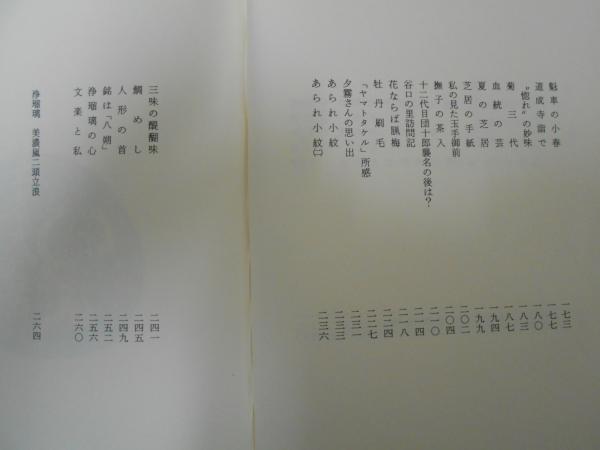 魁車の小春 一七三
道成寺詣で 一七七
“惚れ”の妙味 一八〇
菊三代 一八三
血統の芸 一八七
夏の芝居 一九四
芝居の手紙 一九九
私の見た玉手御前 二〇二
撫子の茶入 二〇四
十二代目団十郎襲名の後は？ 二一〇
谷口の里訪問記
花ならば臘梅 二一八
牡丹刷毛 二二四
「ヤマトタケル」所感 二二七
夕霧さんの思い出 二三一
あられ小紋 二三三
あられ小紋(二) 二三六
三味の醍醐味 二四一
鯛めし 二四五
人形の首 二四九
銘は「八朔」 二五二
浄瑠璃の心 二五六
文楽と私 二六〇
浄瑠璃 美濃風二頭立浪 二六四